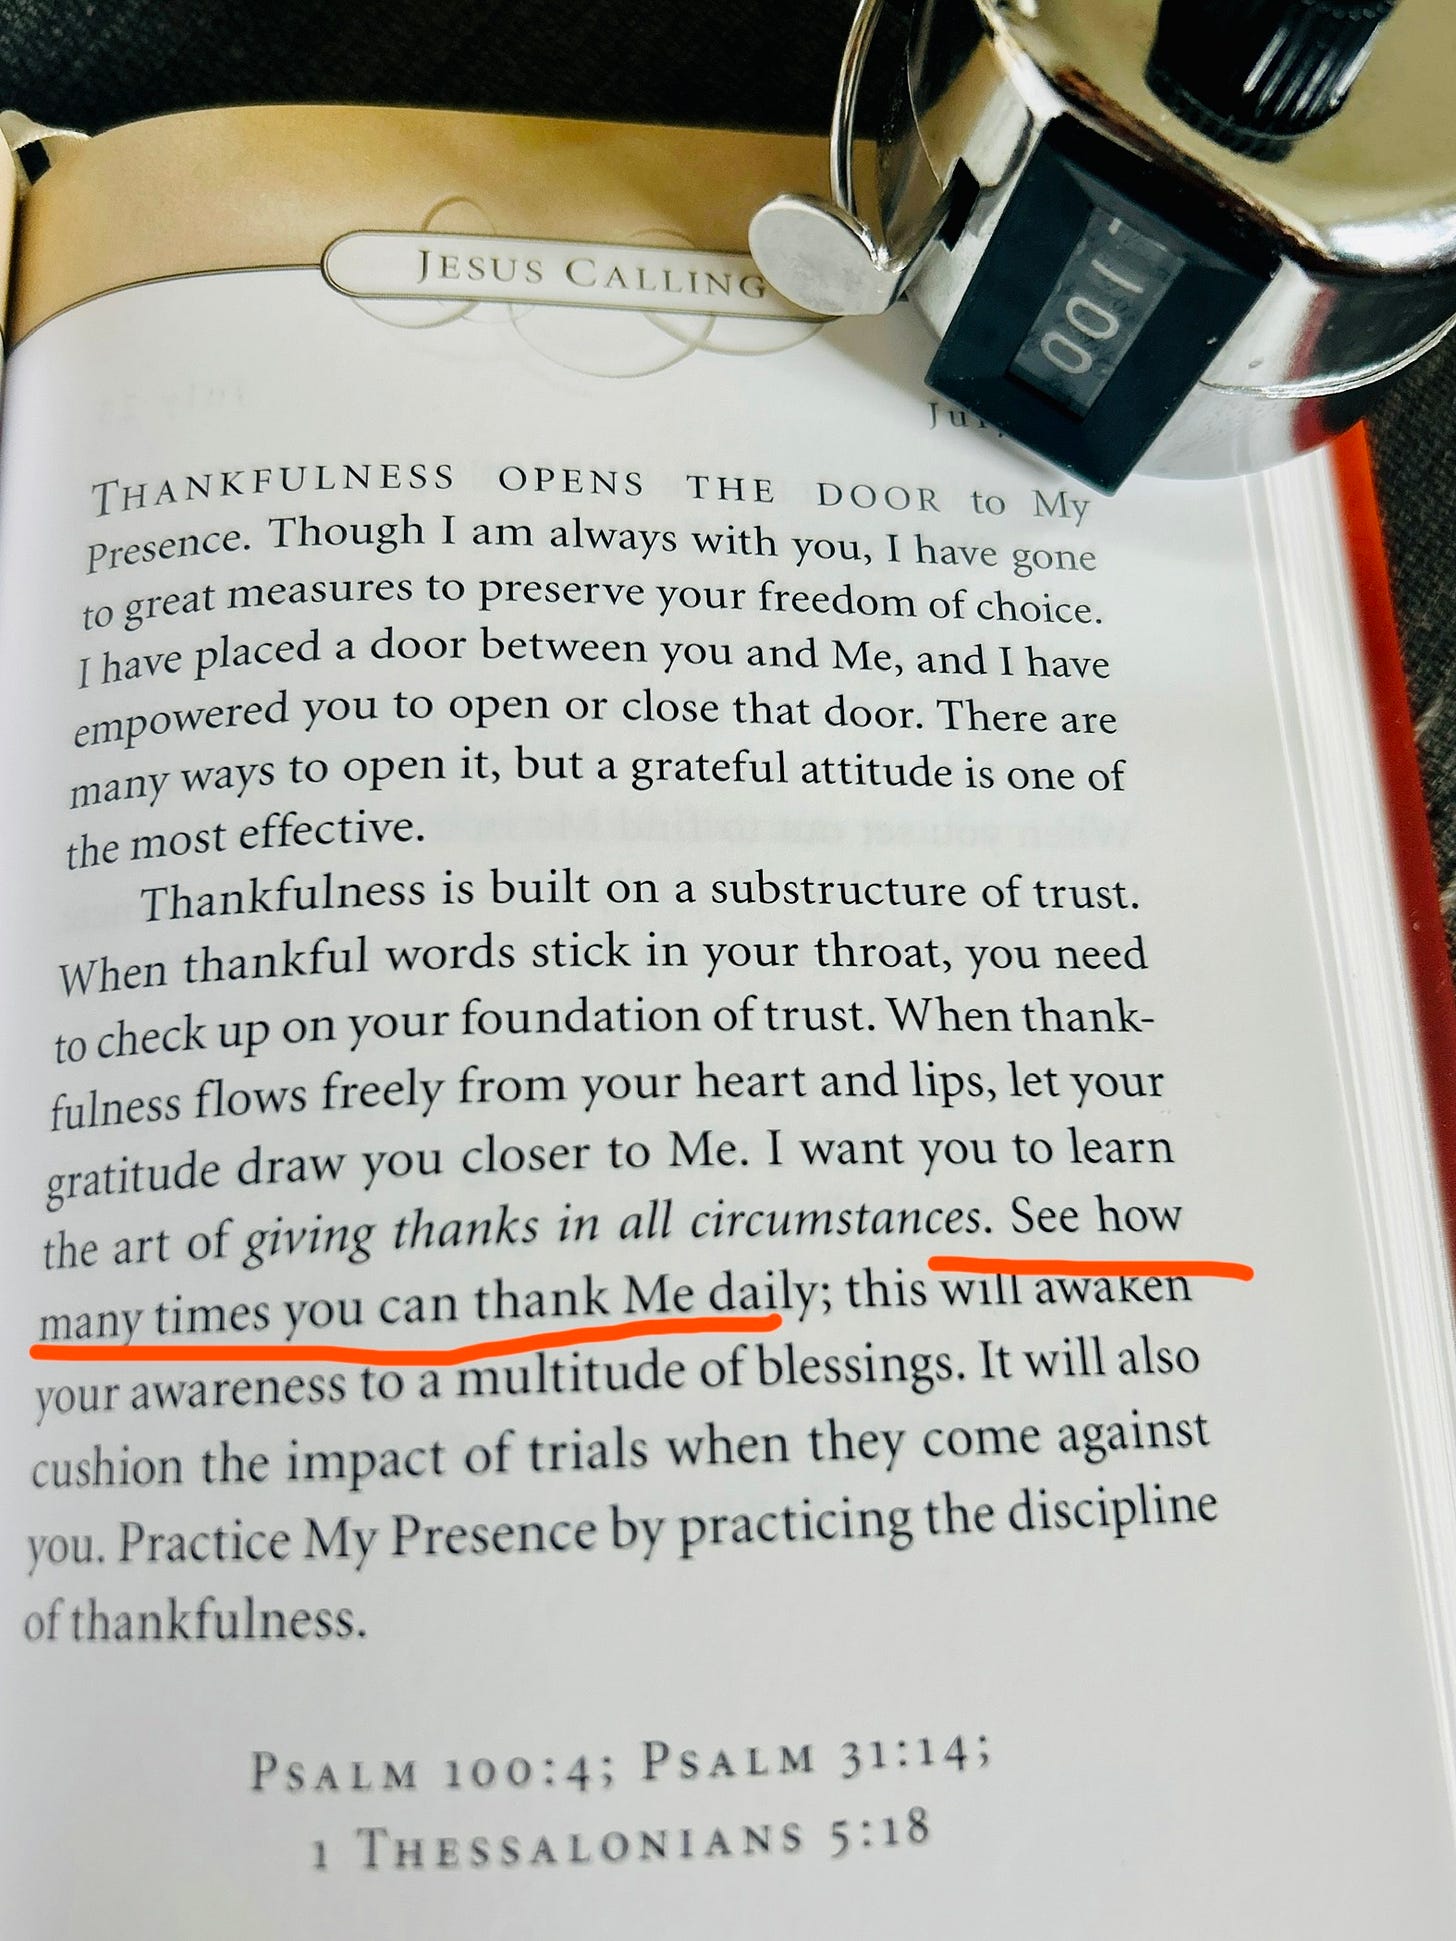 JESUS CALLING
THANKFULNESS OPENS THE DOOR to My
Presence. Though I am always with you, I have gone
to great measures to preserve your freedom of choice.
I have placed a door between you and Me, and I have
empowered you to open or close that door. There are
many ways to open it, but a grateful attitude is one of
the most effective.
Thankfulness is built on a substructure of trust.
When thankful words stick in your throat, you need
to check up on your foundation of trust. When thank-
fulness flows freely from your heart and lips, let your
gratitude draw you closer to Me. I want you to learn
the art of giving thanks in all circumstances. See how
many times you can thank Me daily; this will awaken
your awareness to a multitude of blessings. It will also
cushion the impact of trials when they come against
you. Practice My Presence by practicing the discipline
of thankfulness.
PSALM 100:4; PSALM 31:14;
1 THESSALONIANS 5:18